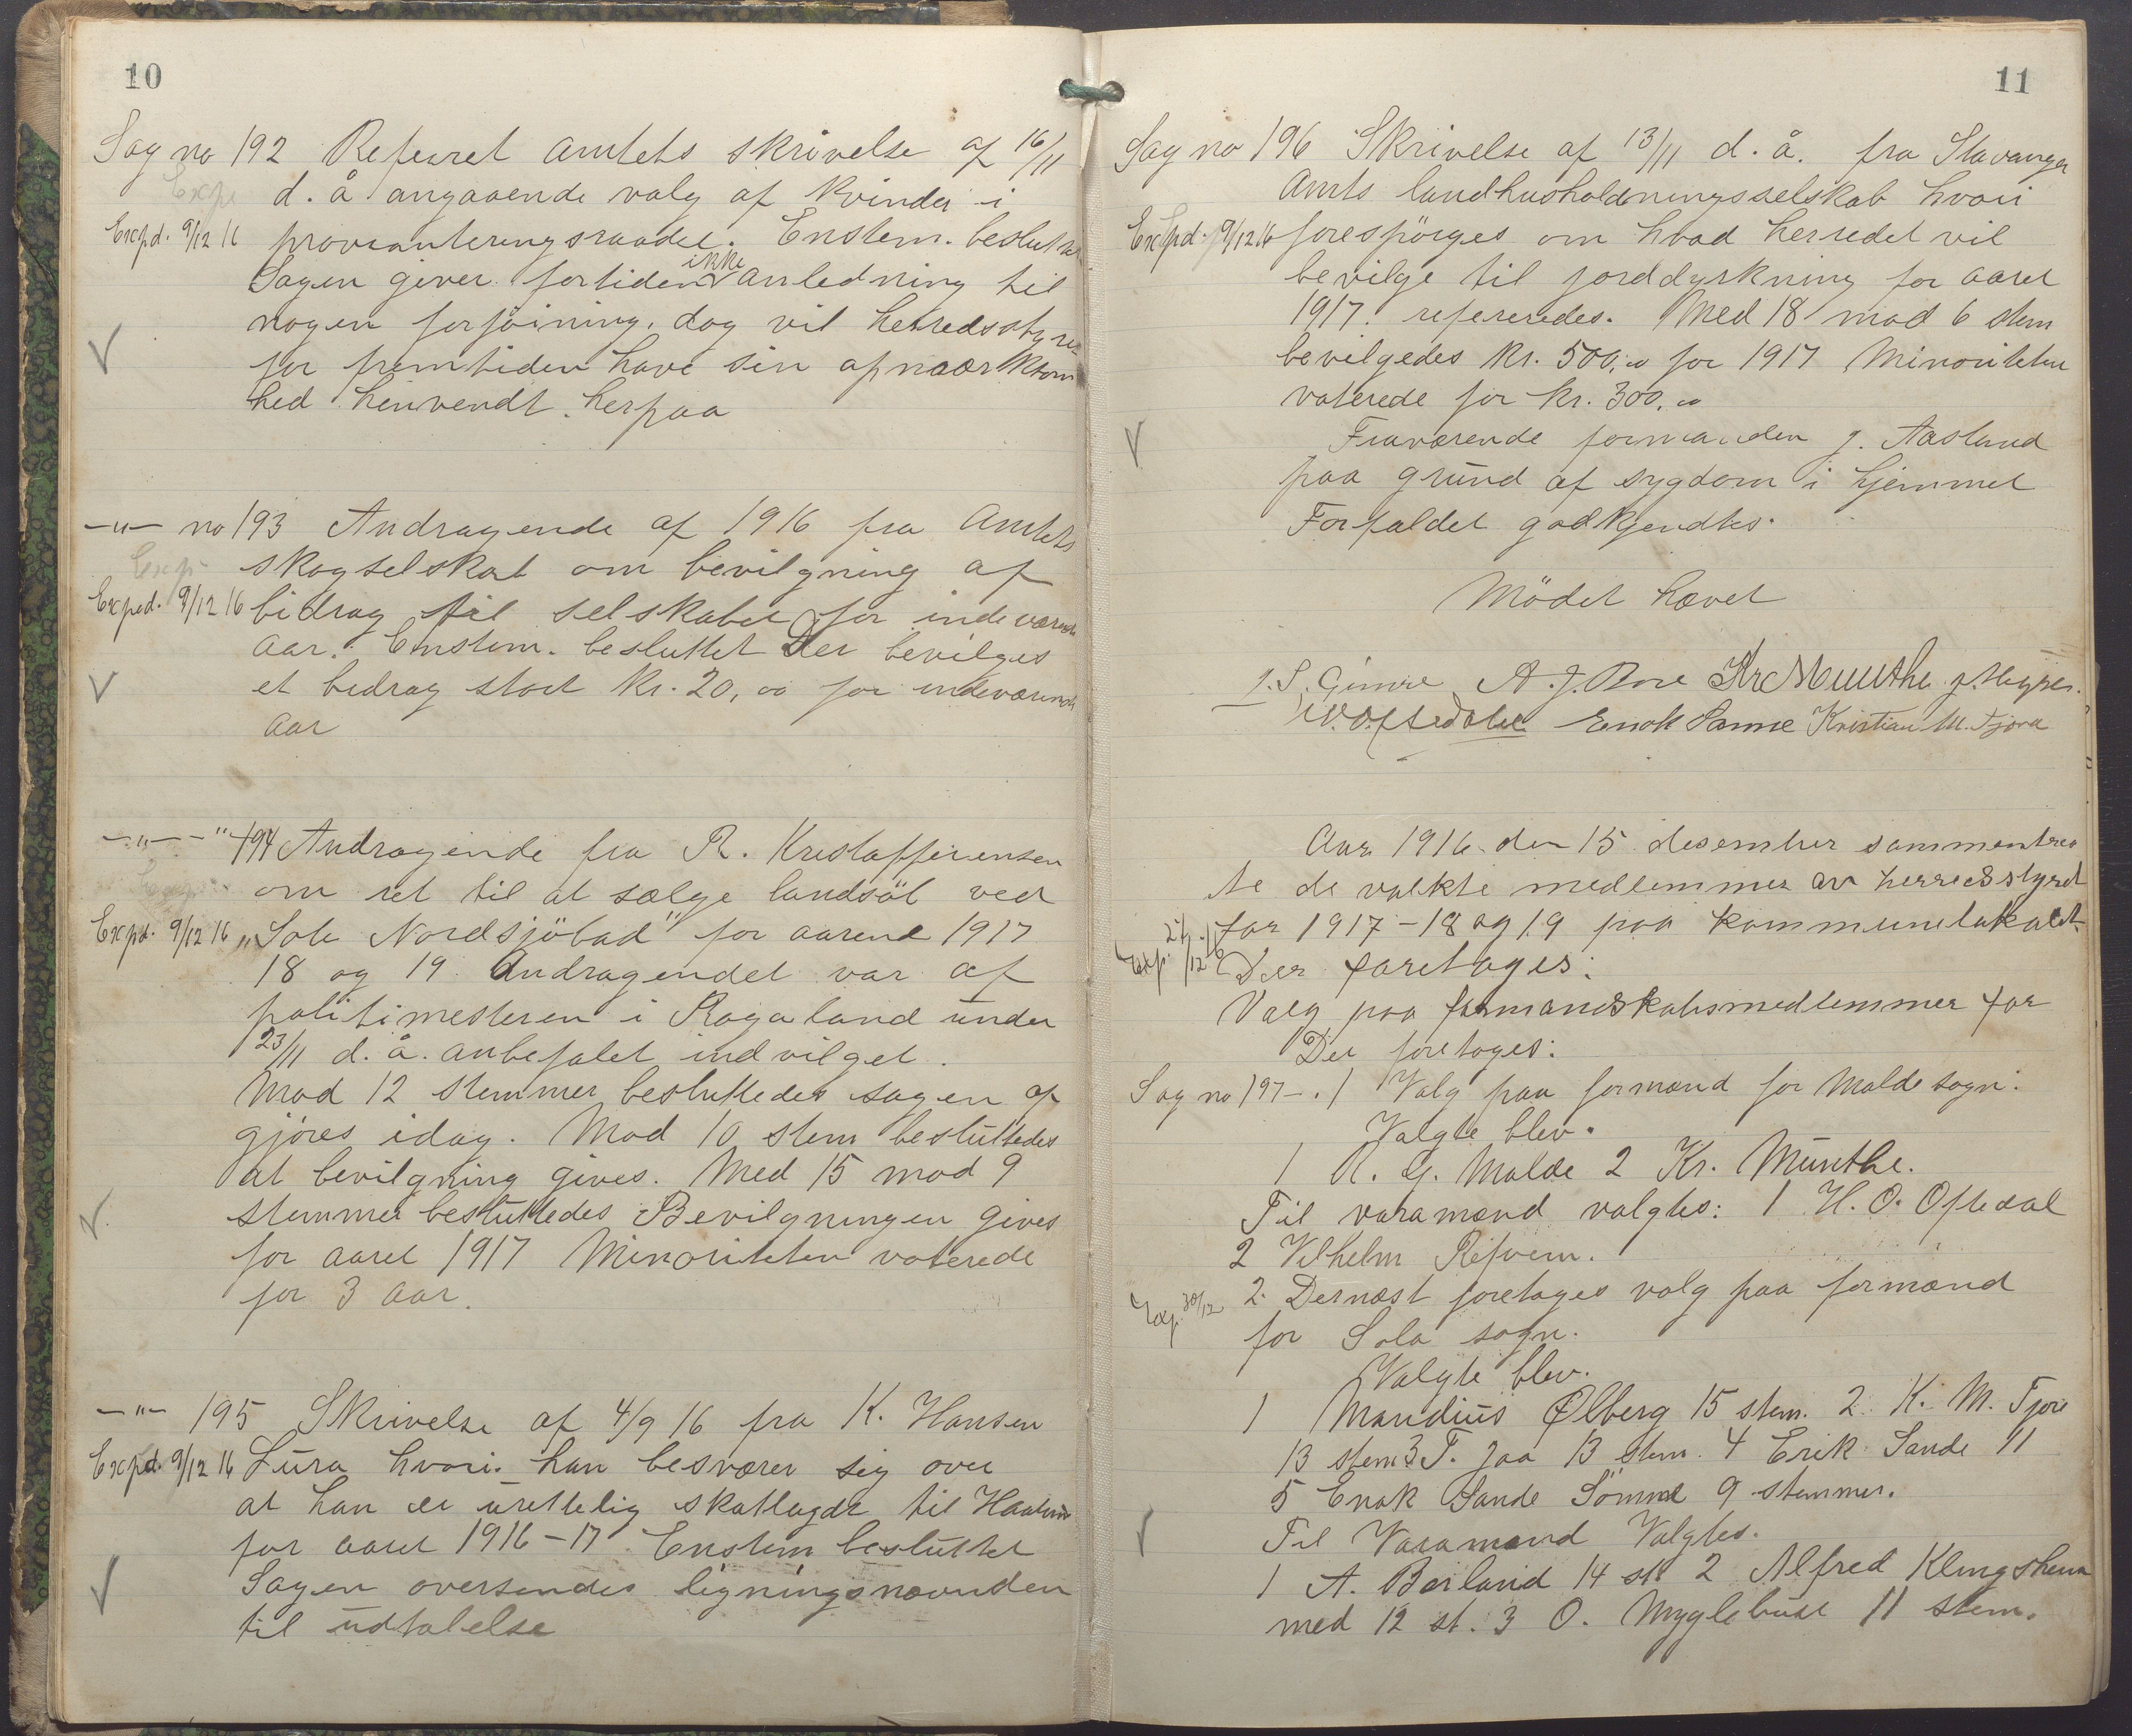 10
Sag no 192 Referert amtets skrivelse af 16/11
Exp
d. å angaaende valg af Kvinder i
Expd. 9/12 16 provianteringsraadet. Enstem. besluttet
Sagen giver fortiden ikke anledning til
nogen forföining, dog vil herredsstyret
for fremtiden have sin opmærksom
hed henvendt herpaa
-"- no 193 Andragende af 1916 fra Amtets
Exp
skogselskab om bevilgning af
Exped. 9/12 16 bidrag til selskabet for indeværende
aar. Enstem. besluttet Der bevilges
et bidrag stort kr. 20,00 for indeværende
aar
-"- " 194 Andragende fra R. Kristoffersensen
om ret til at sælge landsöl ved
Expd. 9/12 16 "Sole Nordsjöbad" for aarene 1917
18 og 19. Andragendet var af
politimesteren i Rogaland under
23/11 d. å. anbefalet indvilget.
Mod 12 stemmer besluttedes sagen af
gjöres idag. Mod 10 stem besluttedes
at bevilgning gives. Med 15 mod 9
stemmer besluttedes Bevilgningen gives
for aaret 1917 Minoriteten voterede
for 3 aar.
-"- 195 Skrivelse af 4/9 16 fra K. Hansen
Expd. 9/12 16 Lura hvori han besværer sig over
at han er urettelig skatlagdt til Haaland
for aaret 1916-17. Enstem besluttet
Sagen oversendes ligningsnævnden
til udtalelse
11
Sag no 196 Skrivelse af 13/11 d. å. fra Stavanger
Amts landhusholdningsselskab hvori
Expd. 9/12 16 forespörges om hvad herredet vil
bevilge til jorddyrkning for aaret
1917. refereredes. Med 18 mod 6 stem
bevilgedes kr. 500,00 for 1917 Minoriteten
voterede for kr. 300,00
Fraværende formanden J. Aasland
paa grund af sygdom i hjemmet
Forfaldet godkjendtes.
Mödet hævet
J. S. Gimre A. J. Rore Kr Munthe J. Meyer.
W. Oftedahl Enok Sømme Kristian M. Tjora
Aar 1916 den 15 desember sammentraa
te de valkte medlemmer av herredsstyret
for 1917-18 og 19 paa kommunelokalet.
Exp. /12
Der foretages:
Valg paa formandskabsmedlemmer for
Der foretoges:
Sag no 197-.1 Valg paa formænd for Malde sogn:
Valgte blev.
1 R. G. Malde 2 Kr. Munthe.
Til varamænd valgtes: 1 H. O. Oftedal
2 Vilhelm Refvem.
Exp. 30/12 2. Dernæst foretages valg paa formænd
for Sola sogn.
Valgte blev.
1 Mandius Ølberg 15 stem. 2. K. M. Tjore
13 stem 3 T. Joa 13 stem. 4 Erik Sande 11
5 Enok Sande Sömme 9 stemmer.
Til Varamænd Valgtes.
1 A. Börland 14 st. 2 Alfred Klingsheim
med 12 st. 3 O. Myglebust 11 stem.